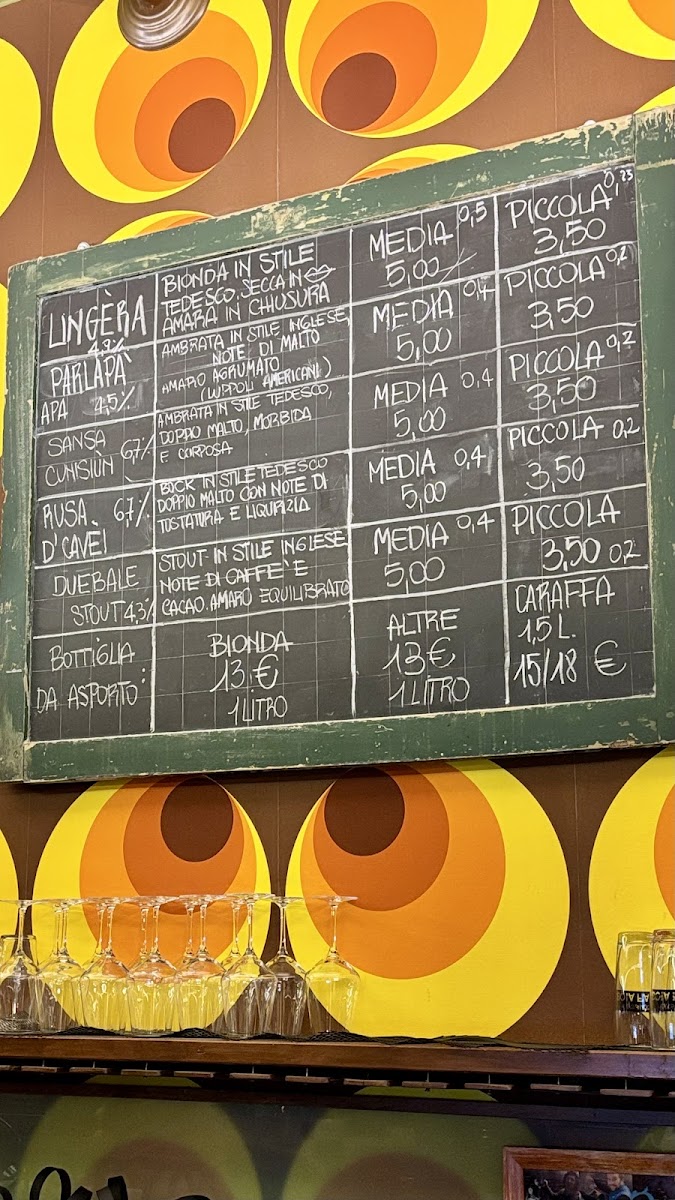 LINGÈRA
4,9%
BIONDA IN STILE
TEDESCO, SECCA IN
AMARA IN CHIUSURA
MEDIA 0,5
5,00
PICCOLA 0,25
3,50
PARLAPÀ
APA 4,5%
AMBRATA IN STILE INGLESE,
NOTE DI MALTO
AMARO AGRUMATO
(LUPPOLI AMERICANI)
MEDIA 0,4
5,00
PICCOLA 0,2
3,50
SANSA
CUNISIÙN 6,7%
AMBRATA IN STILE TEDESCO,
DOPPIO MALTO, MORBIDA
E CORPOSA
MEDIA 0,4
5,00
PICCOLA 0,2
3,50
RUSA 6,7%
D'CAVÈI
BOCK IN STILE TEDESCO
DOPPIO MALTO CON NOTE DI
TOSTATURA E LIQUIRIZIA
MEDIA 0,4
5,00
PICCOLA 0,2
3,50
DUEBALE
STOUT 4,3%
STOUT IN STILE INGLESE
NOTE DI CAFFE' E
CACAO. AMARO EQUILIBRATO
MEDIA 0,4
5,00
PICCOLA
3,50 0,2
BOTTIGLIA
DA ASPORTO:
BIONDA
13 €
1 LITRO
ALTRE
13 €
1 LITRO
CARAFFA
1,5 L.
15/18 €